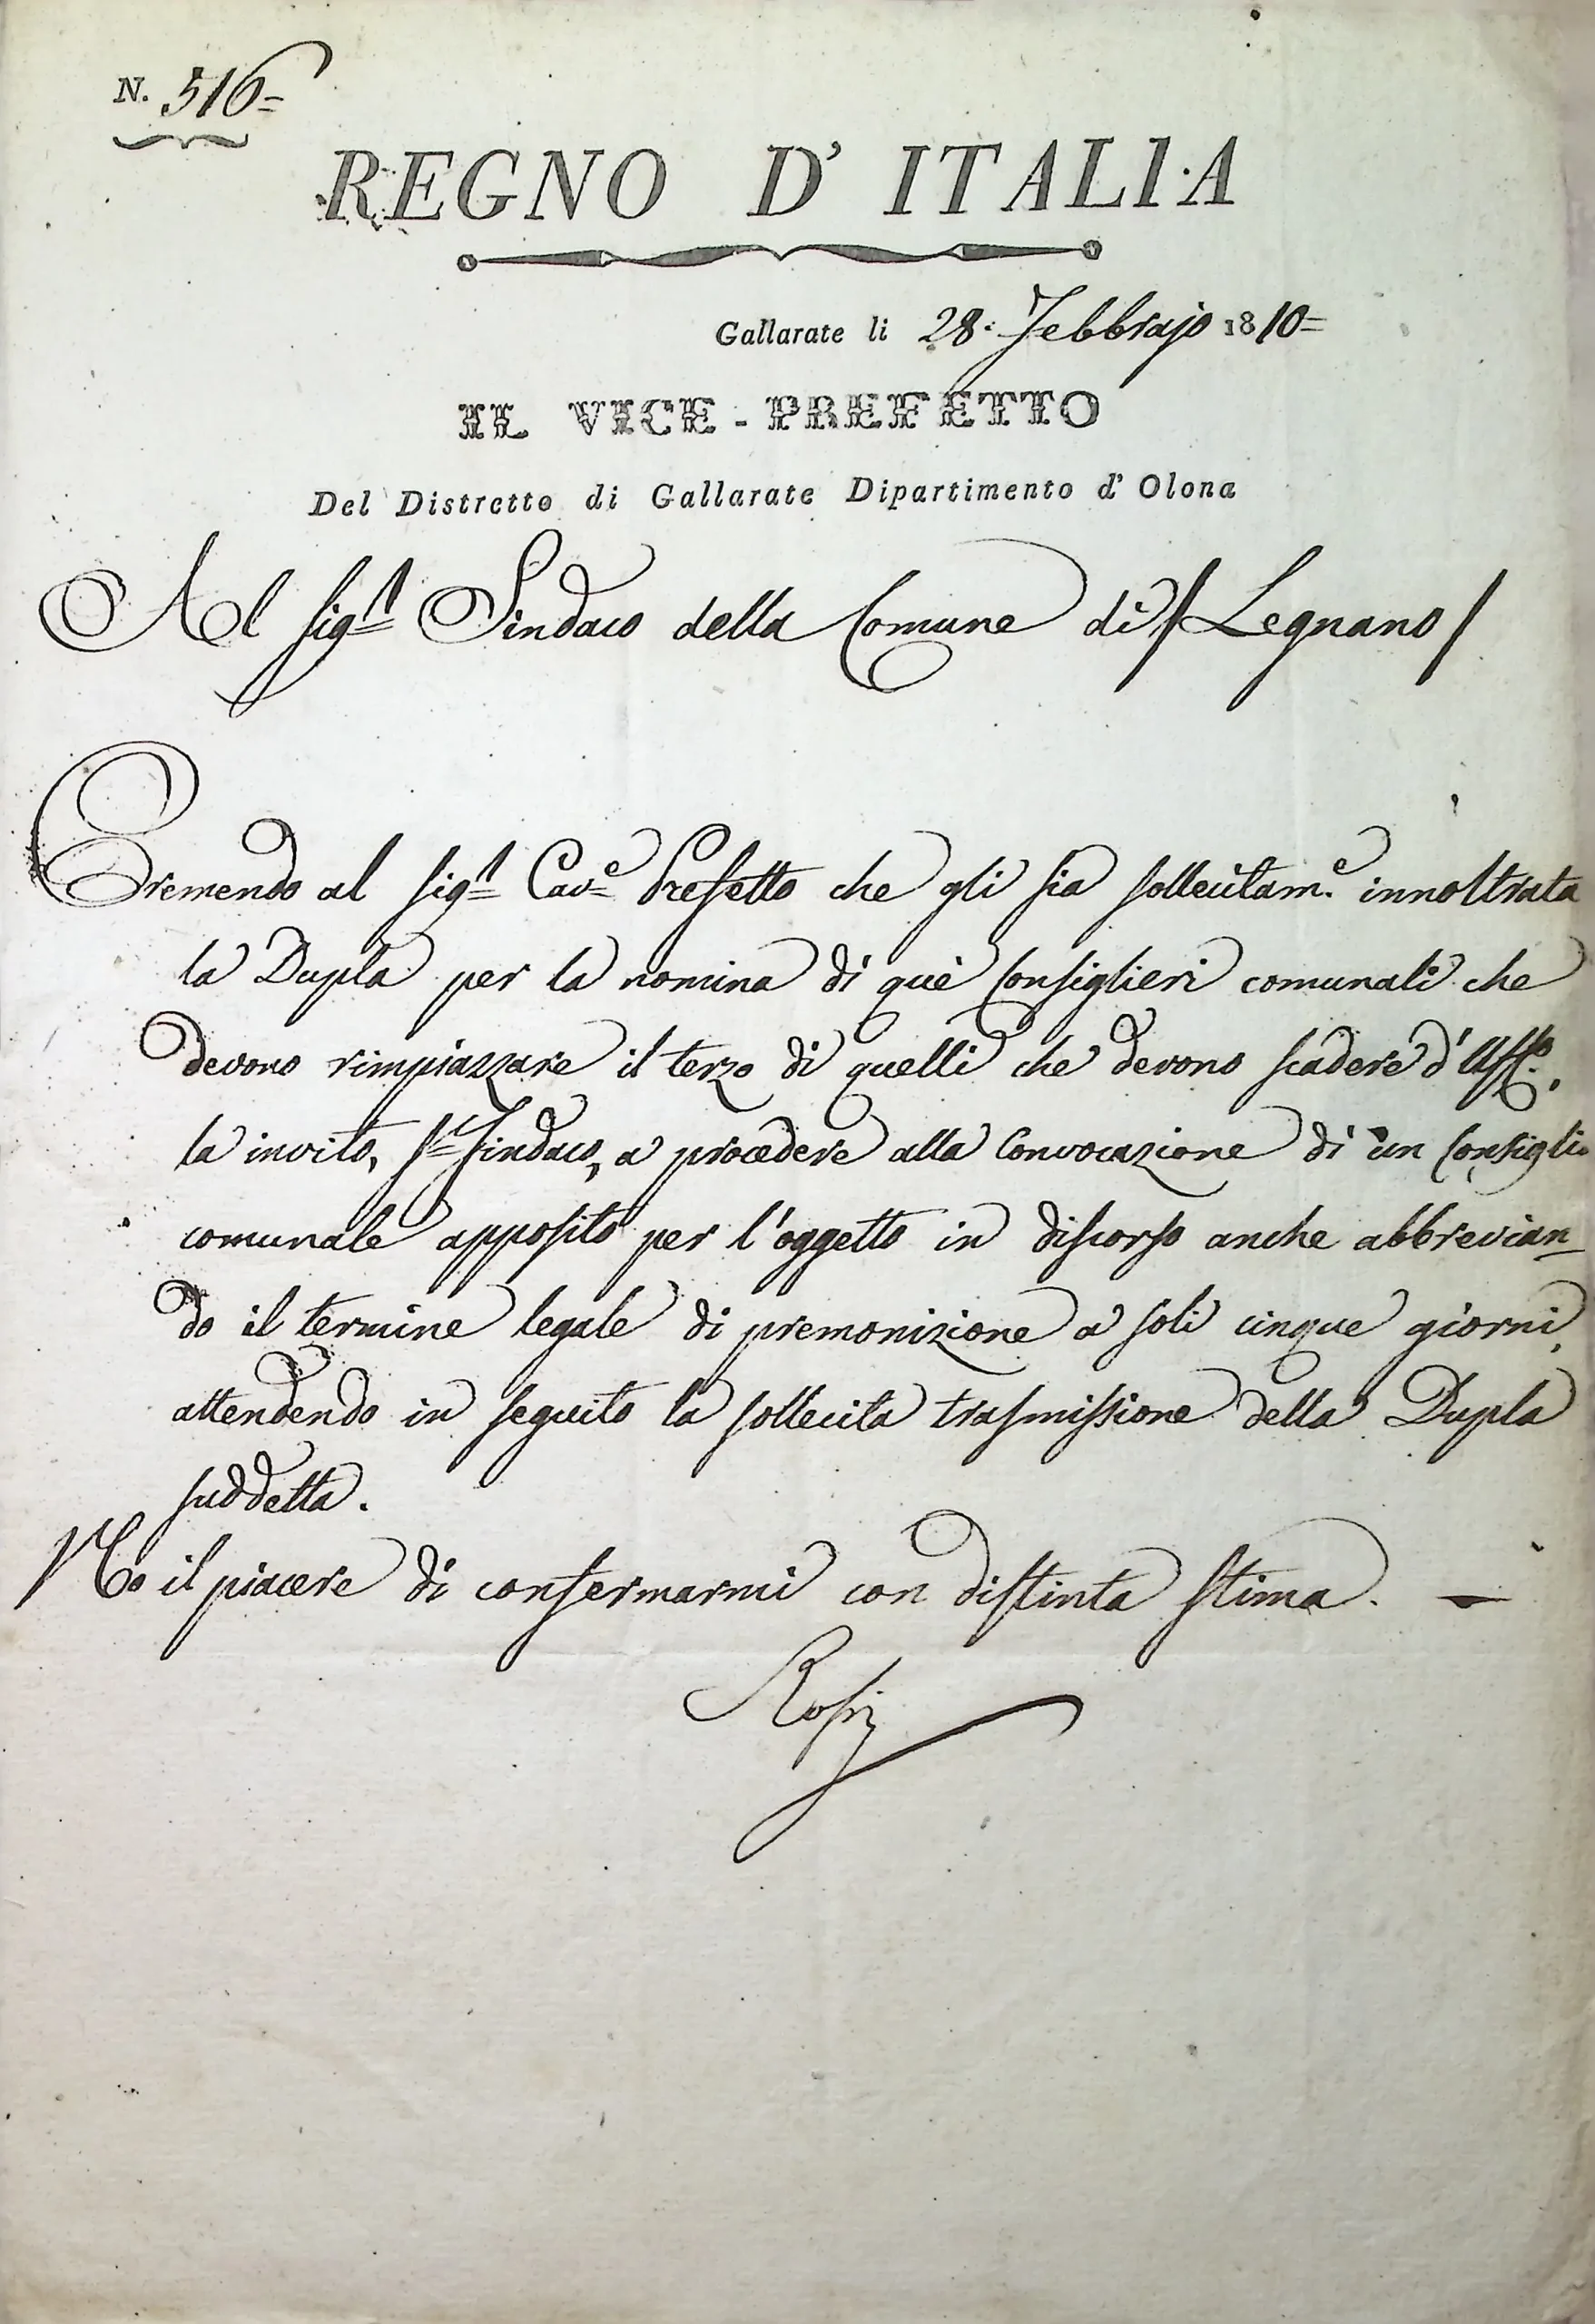 N. 516=
REGNO D' ITALIA
Gallarate li 28. Febbrajo 1810=
IL VICE-PREFETTO
Del Distretto di Gallarate Dipartimento d' Olona
Al Sig.r Sindaco della Comune di / Legnano /
Premendo al Sig.r Cav.e Prefetto che gli sia sollecitam.e innoltrata
la Dupla per la nomina di què Consiglieri comunali che
devono rimpiazzare il terzo di quelli che devono scadere d'Uff.o,
la invito, S.r Sindaco, a procedere alla Convocazione di un Consiglio
comunale apposito per l'oggetto in discorso anche abbrevian=
do il termine legale di premonizione a soli cinque giorni,
attendendo in seguito la sollecita trasmissione della Dupla
suddetta.
Ho il piacere di confermarmi con distinta stima.